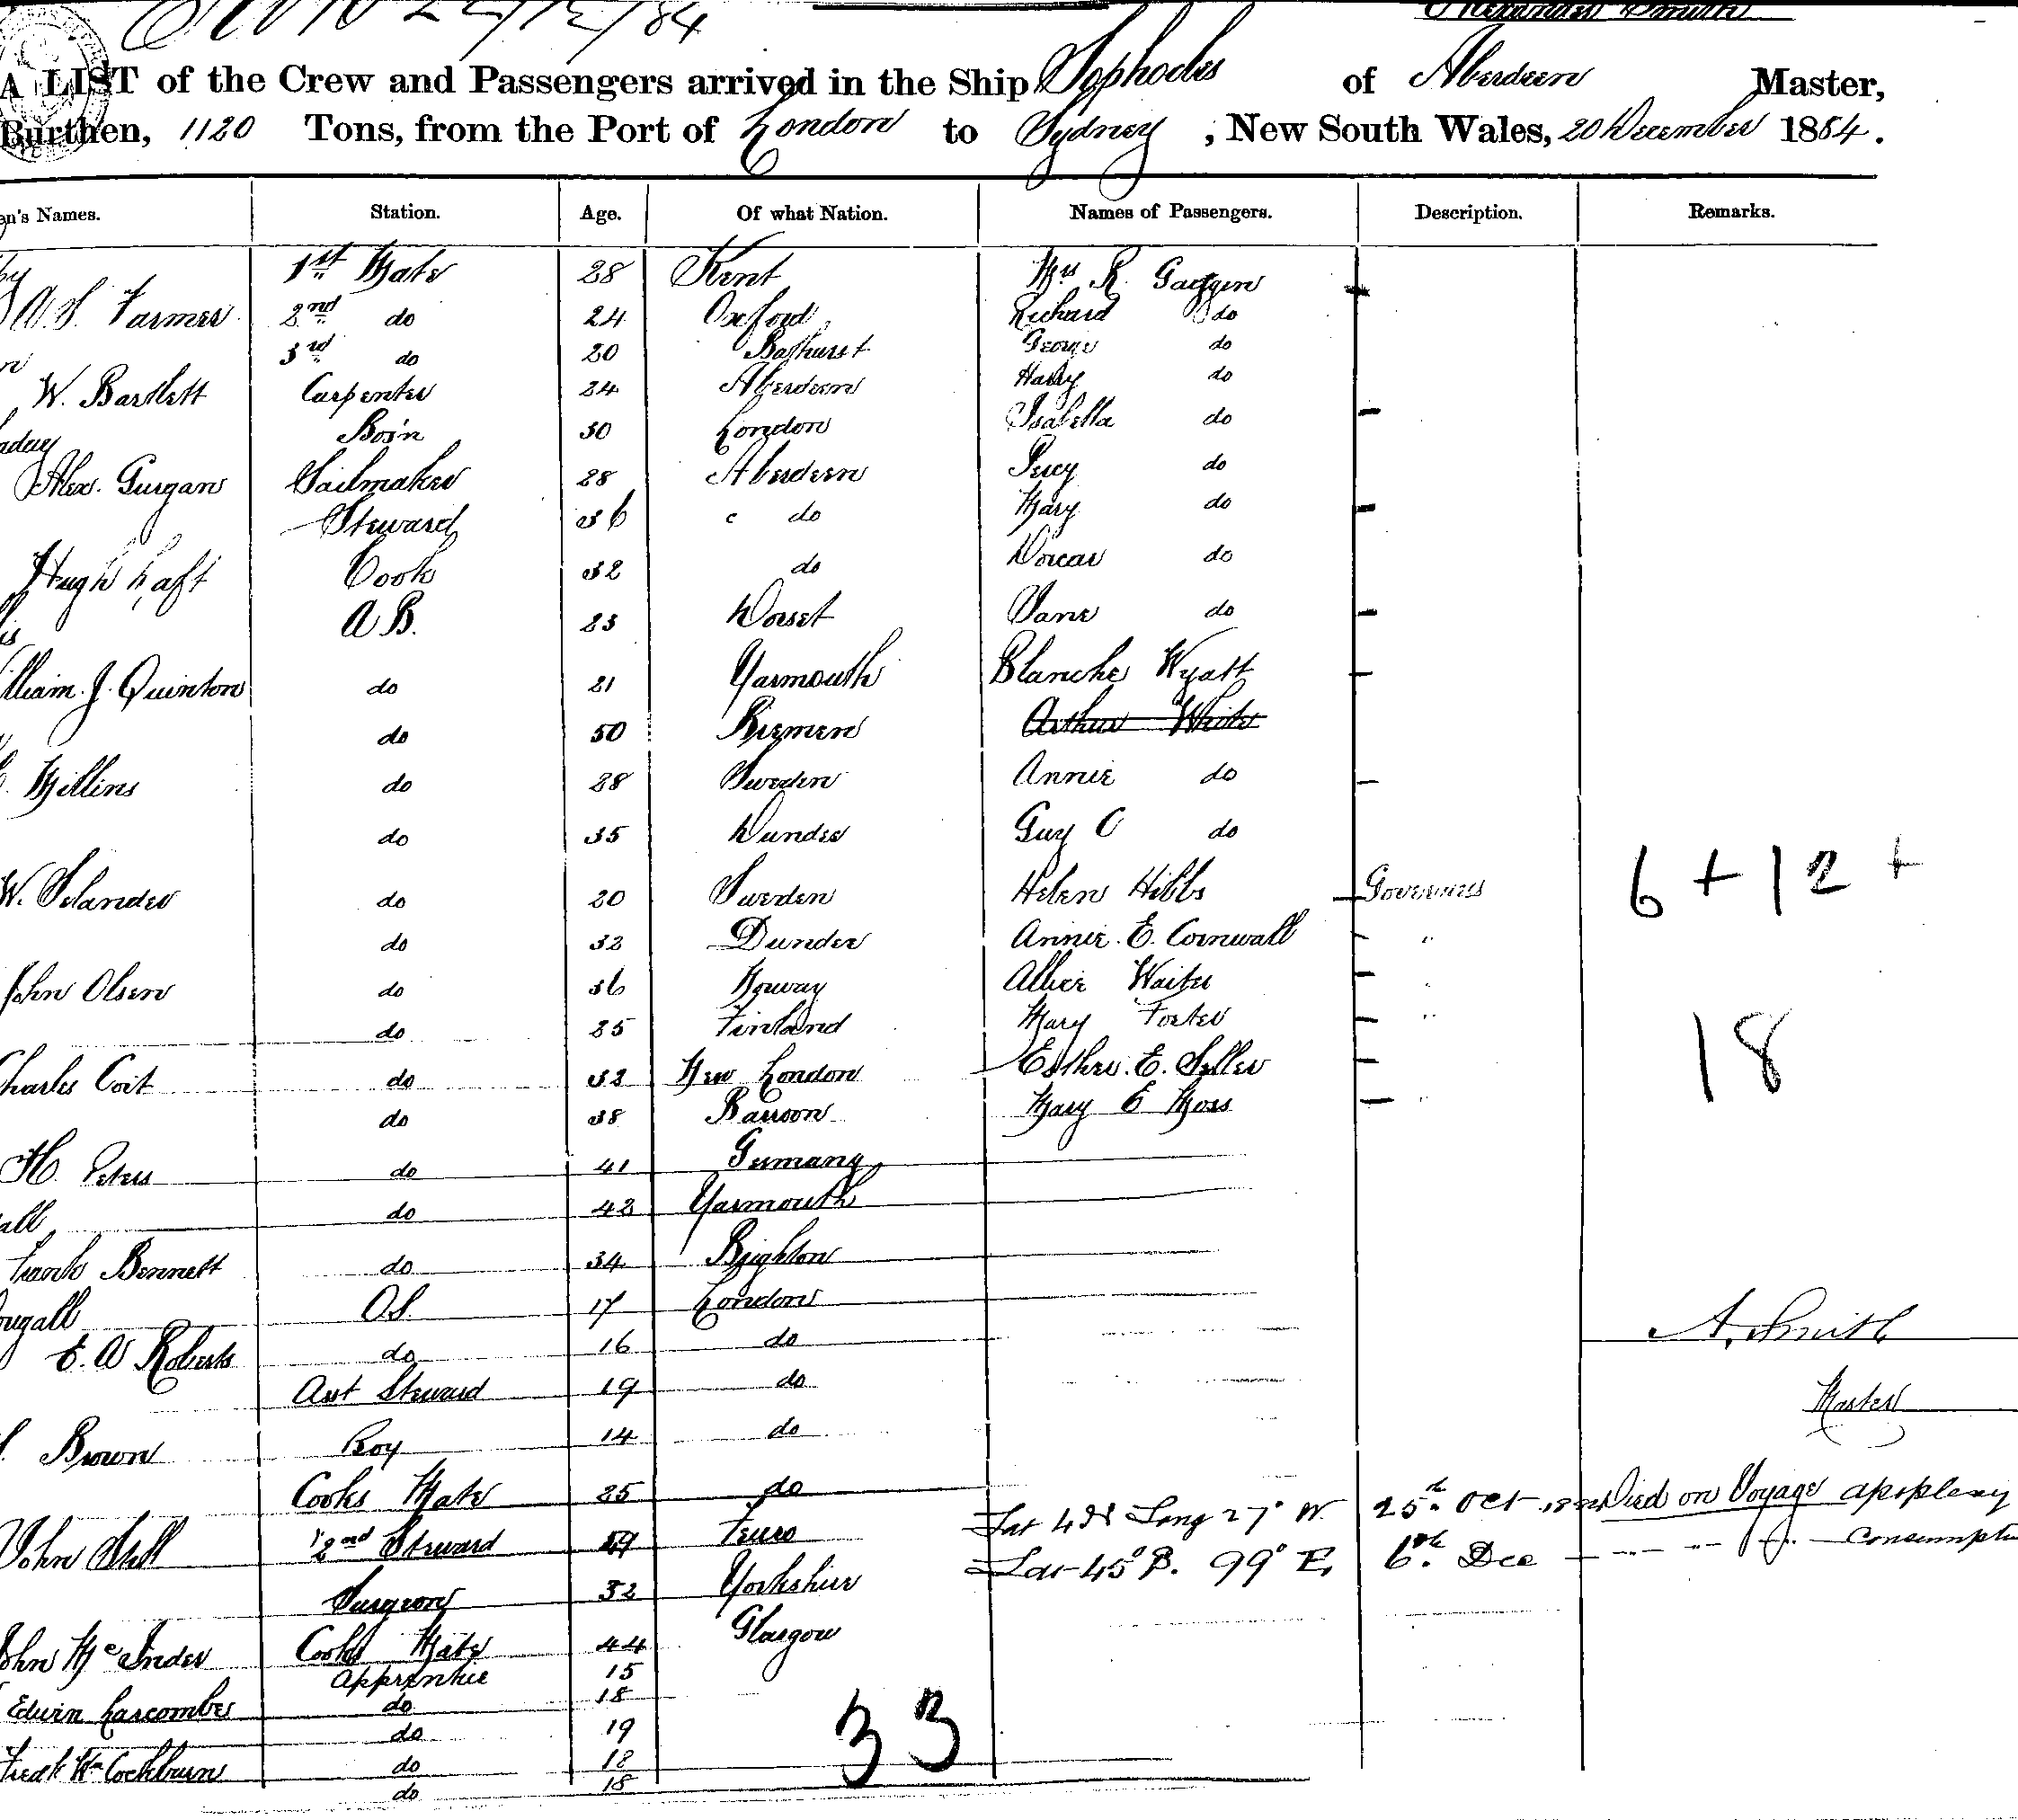 25/12/84
Alexander Smith
A LIST of the Crew and Passengers arrived in the Ship Sophocles of Aberdeen Master,
Burthen, 1120 Tons, from the Port of London to Sydney, New South Wales, 20 December 1884.
en's Names. Station. Age. Of what Nation. Names of Passengers. Description. Remarks.
1st Mate 28 Kent Mrs R.
Farmer 2nd do 24 Oxford Richard do
3rd do 20 Bathurst George do
W. Bartlett Carpenter 24 Aberdeen Harry do
Bos'n 30 London Isabella do
Alex. Gurgan Sailmaker 28 Aberdeen Percy do
Steward 36 do Mary do
Hugh Taft Cook 32 do Dorcas do
A B. 23 Dorset Jane do
lliam. J. Quinton do 21 Yarmouth Blanche Wyatt
do 50 Bremen Arthur White
Millins do 28 Sweden Annie do
do 35 Dundee Guy C do
W. Selander do 20 Sweden Helen Hibbs Governess 6 + 12 +
do 32 Dundee Annie. E. Cornwall "
John Olsen do 36 Norway Allice Waites "
do 25 Finland Mary Foster " 18
Charles Coit do 32 New London Esther. E. Seller
do 38 Mary E Moss "
H. Peters do 41 Germany
all do 42 Yarmouth
Frank Bennett do 34 Brighton
ougall O.S. 17 London A. Smith
E. W Roberts do 16 do
Asst Steward 19 do Master
Brown Boy 14 do
Cooks Mate 25 do
Lat 4 N Long 27° W. 25th Oct 1884 Died on Voyage apoplexy
John Still 2nd Steward 49
Lat 45° S. 99° E, 6th Dec — " — " — consumpti
Surgeon 32 Yorkshire
John McInder Cooks Mate 44 Glasgow
Apprentice 15
Edwin Larcombe do 18
do 19 33
Fredk Wm Cockburn do 18
do 18